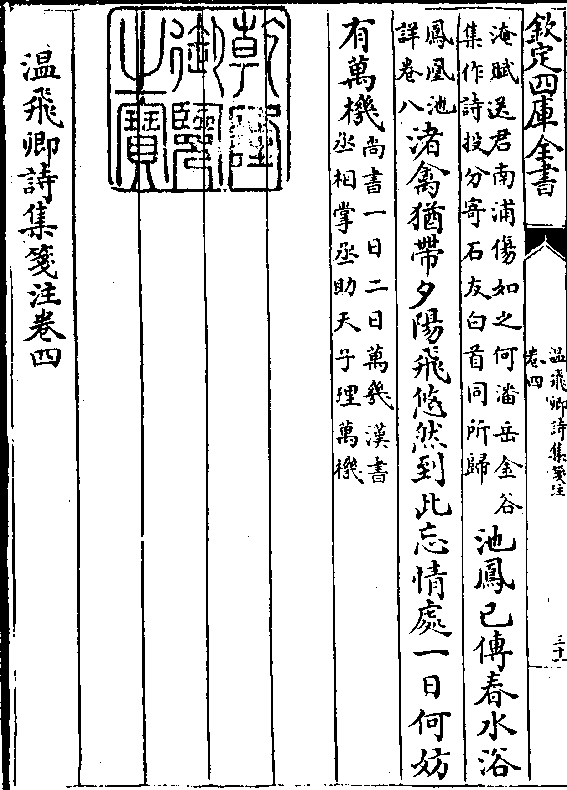 欽定四庫全書
温飛卿詩集箋注
卷四
三十一
淹賦送君南浦傷如之何潘岳金谷
集作詩投分寄石友白首同所歸
池鳳已傳春水浴
鳳凰池
詳卷八
渚禽猶帶夕陽飛悠然到此忘情處一日何妨
有萬機
尚書一日二日萬幾漢書
丞相掌丞助天子理萬機
乾隆
御覽
之寶
温飛卿詩集箋注卷四